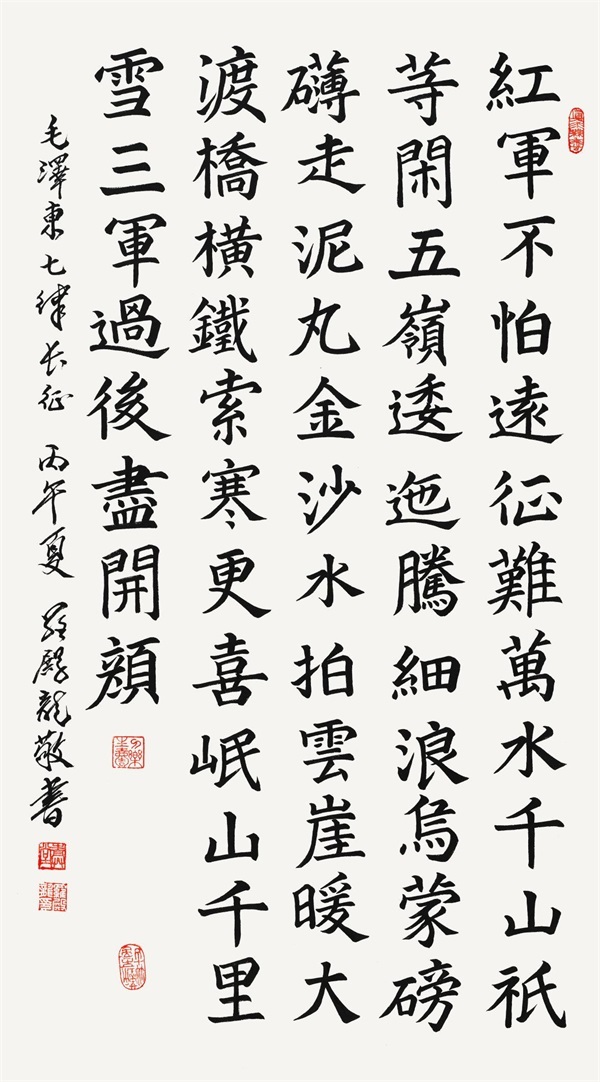 紅軍不怕遠征難萬水千山祇
等閑五嶺逶迤騰細浪烏蒙磅
礴走泥丸金沙水拍雲崖暖大
渡橋橫鐵索寒更喜岷山千里
雪三軍過後盡開顏
毛澤東七律长征 丙午夏 龍敬書